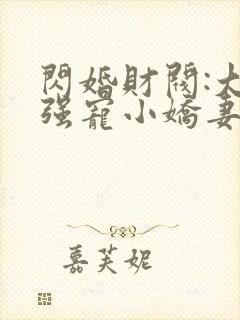 閃婚財閥:大
强寵小嬌妻
嘉芙妮